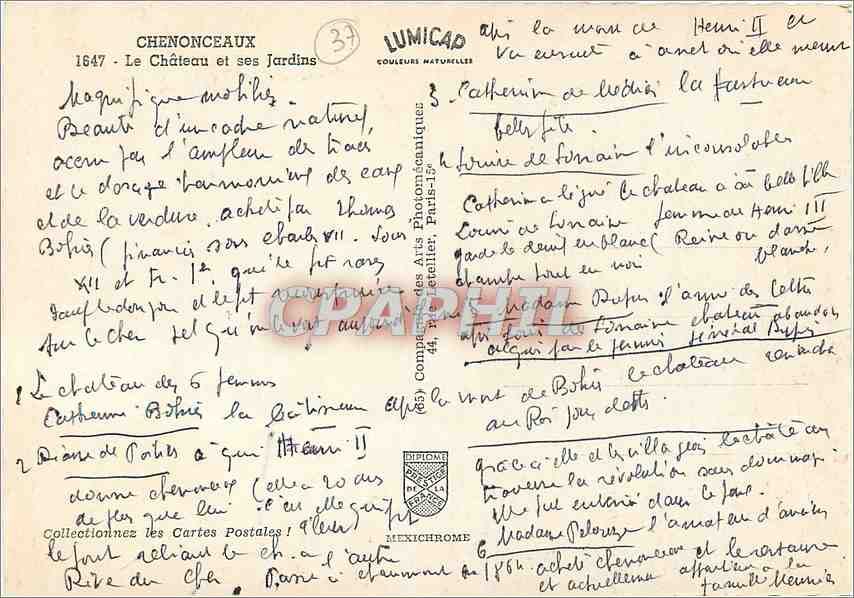 CHENONCEAUX
1647 - Le Château et ses Jardins
37
LUMICAP
COULEURS NATURELLES
Magnifique mobilier.
Beauté d'un cadre naturel,
accru par l'ampleur des
et le dosage harmonieux des eaux
et de la verdure. acheté par Thomas
Bohier (financier sous Charles VII. Louis
XII et Fr. 1er, qu'il fit raser
sauf le donjon et le fit reconstruire
sur le Cher tel qu'on le voit aujourd'hui
1 Le château des 6 femmes
Catherine Bohier la bâtisseuse
2 Diane de Poitiers à qui Henri II
donne chenonceau (elle a 20 ans
de plus que lui c'est elle qui fit
le pont reliant le ch. à l'autre
Rive du Cher.
après la mort de Henri II
va ensuite à anet où elle meurt
3. Catherine de Médicis la fastueuse
belles fêtes.
4 Louise de Lorraine l'inconsolable
Catherine a légué le chateau à sa belle fille
Louise de Lorraine femme de Henri III
garde le deuil en blanc (Reine ou dame
blanche,
chambre tout en noir
5 Madame Dupin l'amie des lettres
après Louise de Lorraine chateau abandonné
acquis par le fermier général Dupin
après la mort de Bohier le chateau
au Roi pour dettes.
grâce à elle et les villageois le château
traverse la révolution sans dommage.
elle fut enterrée dans le parc.
6 Madame Pelouze l'amateur d'ancien
1864. acheté chenonceau et le restaure
et actuellement appartient à la
famille Meunier
(65) Compagnie des Arts Photomécaniques
44, rue Letellier, Paris-15e
DIPLOME
PRESTIGE
DE LA
FRANCE
MEXICHROME
Collectionnez les Cartes Postales !
CPAPHIL